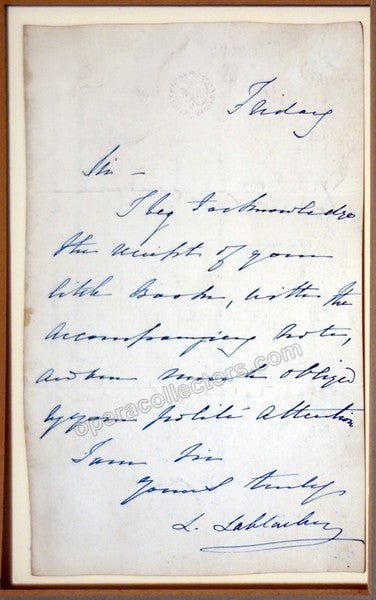 Friday
Sir -
I beg to acknowledge
the receipt of your
little Book, with the
accompanying note,
and am much obliged
by your polite attention
I am Sir
yours truly
L. Lablache
operacollectors.com